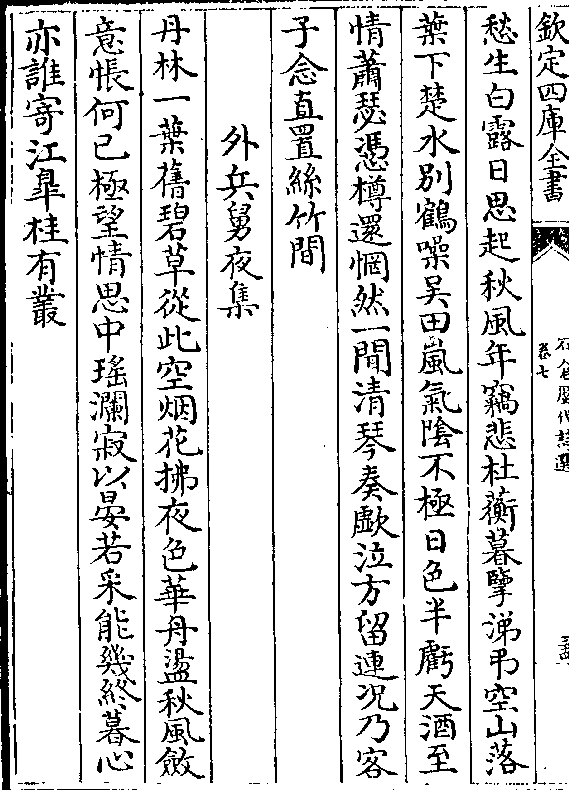 欽定四庫全書
石倉歷代詩選
卷七
愁生白露日思起秋風年竊悲杜蘅暮擥涕弔空山落
葉下楚水別鶴噪吳田嵐氣陰不極日色半虧天酒至
情蕭瑟憑樽還惘然一聞清琴奏歔泣方留連况乃客
子念直置絲竹間
外兵舅夜集
丹林一葉舊碧草從此空烟花拂夜色華丹盪秋風斂
意悵何已極望情思中瑤瀾寂以晏若采能幾終暮心
亦誰寄江臯桂有叢